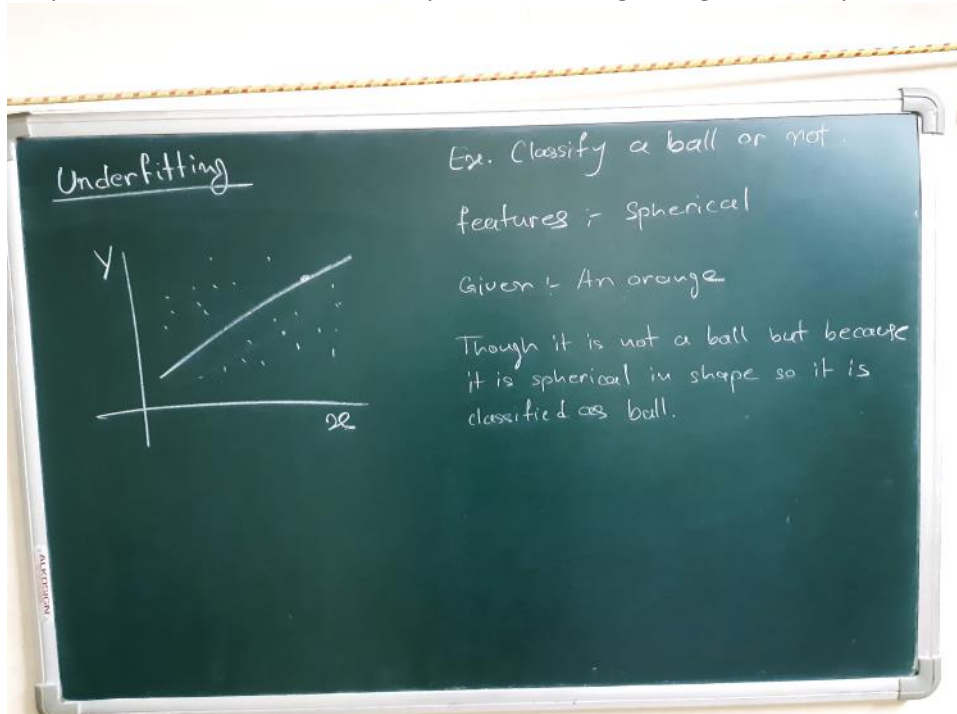 Underfitting
Y
x
Ex. Classify a ball or not.
features :- Spherical
Given :- An orange
Though it is not a ball but because
it is spherical in shape so it is
classified as ball.
ALKOSIGN